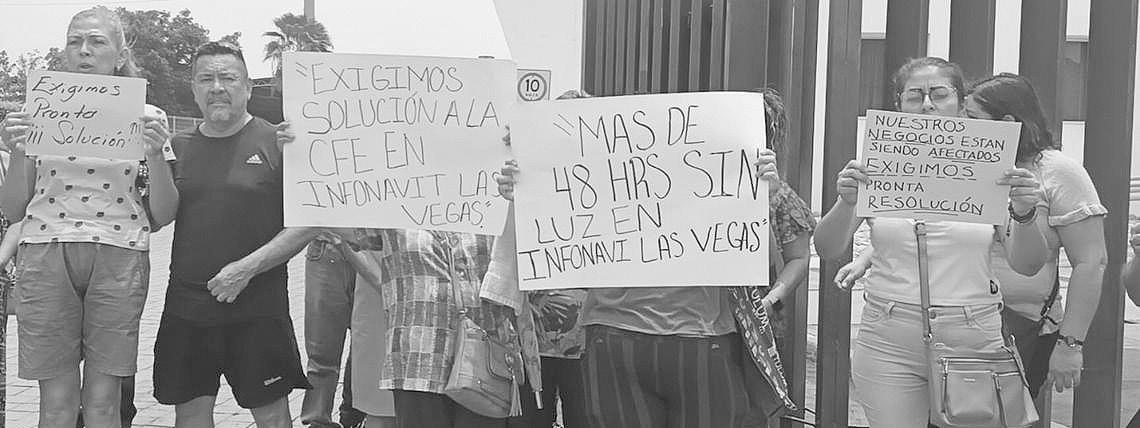 Exigimos
Pronta
¡¡¡ Solución !!!
"EXIGIMOS
SOLUCIÓN A LA
CFE EN
INFONAVIT LAS
VEGAS"
10
"MAS DE
48 HRS SIN
LUZ EN
INFONAVI LAS VEGAS"
NUESTROS
NEGOCIOS ESTAN
SIENDO AFECTADOS
EXIGIMOS
PRONTA
RESOLUCIÓN
adidas
Wilson